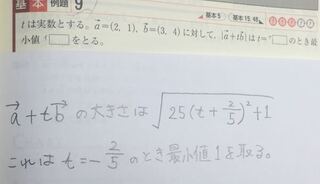 基本 例題 9
基本5 基本15,48
tは実数とする。a⃗=(2, 1), b⃗=(3, 4) に対して,|a⃗+tb⃗|は t=□のとき最
小値 □をとる。
a⃗+tb⃗ の大きさは √25(t+2/5)²+1
これは t=-2/5 のとき最小値1を取る。